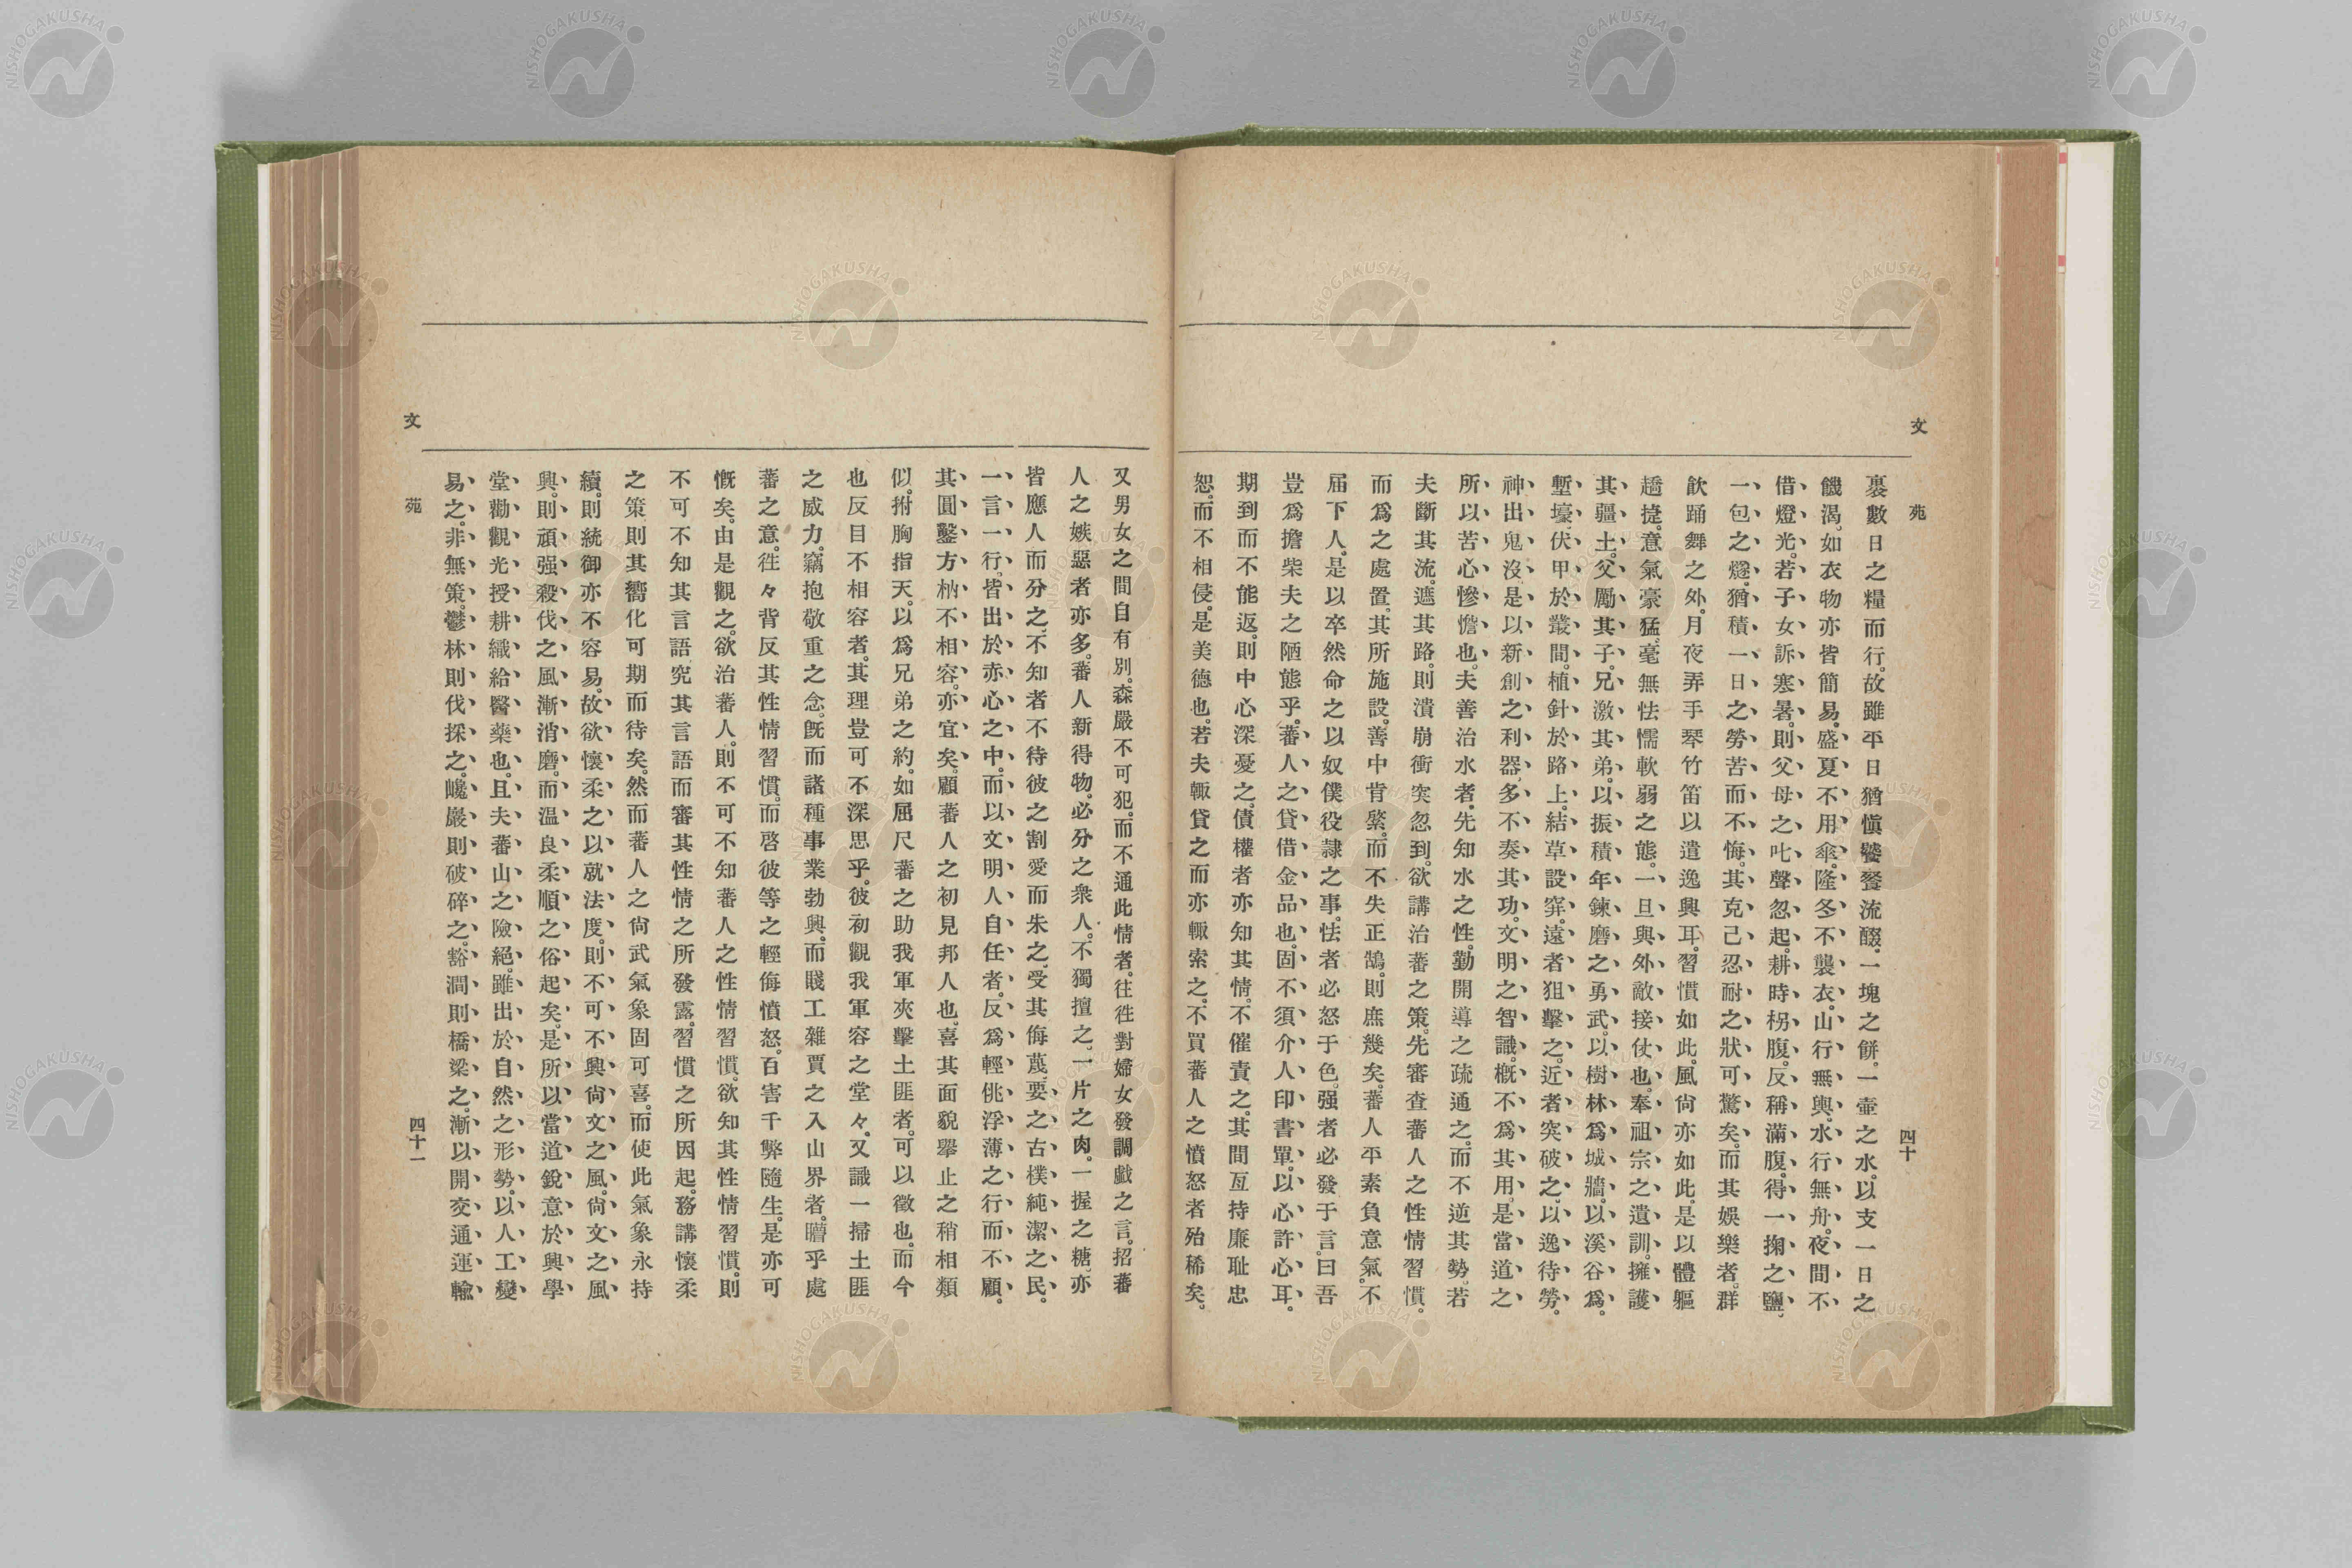 文苑
四十
裹數日之糧而行。故雖平日猶愼饕餮流醊。一塊之餅。一壷之水。以支一日之
饑渴。如衣物亦皆簡易。盛夏不用傘。隆冬不襲衣。山行無輿。水行無舟。夜間不
借燈光。若子女訴寒暑。則父母之叱聲忽起。耕時枴腹。反稱滿腹。得一掬之鹽、
一包之燧。猶積一日之勞苦而不悔。其克己忍耐之狀可驚矣。而其娛樂者。群
飮踊舞之外。月夜弄手琴竹笛以遣逸興耳。習慣如此。風尙亦如此。是以體軀
趫捷。意氣豪猛。毫無怯懦軟弱之態。一旦與外敵接仗也。奉祖宗之遺訓。擁護
其疆土。父勵其子。兄激其弟。以振積年鍊磨之勇武。以樹林爲城牆。以溪谷爲
塹壕。伏甲於叢間。植針於路上。結草設穽。遠者狙擊之。近者突破之。以逸待勞。
神出鬼沒。是以新創之利器。多不奏其功。文明之智識。槪不爲其用。是當道之
所以苦心慘憺也。夫善治水者。先知水之性。勤開導之疏通之。而不逆其勢。若
夫斷其流。遮其路。則潰崩衝突忽到。欲講治蕃之策。先審查蕃人之性情習慣。
而爲之處置。其所施設。善中肯綮。而不失正鵠。則庶幾矣。蕃人平素負意氣。不
屈下人。是以卒然命之以奴僕役隷之事。怯者必怒于色。强者必發于言。曰吾
豈爲擔柴夫之陋態乎。蕃人之貸借金品也。固不須介人印書單。以心許心耳。
期到而不能返。則中心深憂之。債權者亦知其情。不催責之。其間互持廉耻忠
恕。而不相侵。是美德也。若夫輙貸之而亦輙索之。不買蕃人之憤怒者殆稀矣。
又男女之間自有別。森嚴不可犯。而不通此情者。往徃對婦女發調戯之言。招蕃
人之嫉惡者亦多。蕃人新得物。必分之衆人。不獨擅之。一片之肉。一握之糖、亦
皆應人而分之。不知者不待彼之割愛而朱之。受其侮蔑。要之古樸純潔之民。
一言一行。皆出於赤心之中。而以文明人自任者。反爲輕佻浮薄之行而不顧。
其圓鑿方枘不相容。亦宜矣。顧蕃人之初見邦人也。喜其面貌擧止之稍相類
似。拊胸指天。以爲兄弟之約。如屈尺蕃之助我軍夾擊土匪者。可以徵也。而今
也反目不相容者。其理豈可不深思乎。彼初觀我軍容之堂々。又識一掃土匪
之威力。竊抱敬重之念。旣而諸種事業勃興。而賤工雜賈之入山界者。瞻乎處
蕃之意。徃々背反其性情習慣。而啓彼等之輕侮憤怒。百害千弊隨生。是亦可
慨矣。由是觀之。欲治蕃人。則不可不知蕃人之性情習慣。欲知其性情習慣。則
不可不知其言語。究其言語而審其性情之所發露。習慣之所因起。務講懷柔
之策。則其嚮化可期而待矣。然而蕃人之尙武氣象固可喜。而使此氣象永持
續。則統御亦不容易。故欲懷柔之以就法度。則不可不興尙文之風。尙文之風
興。則頑强殺伐之風漸消磨。而温良柔順之俗起矣。是所以當道銳意於興學
堂、勸觀光、授耕織、給醫藥也。且夫蕃山之險絕。雖出於自然之形勢。以人工變
易之。非無策。鬱林則伐採之。巉巖則破碎之。豁澗則橋梁之。漸以開交通運輸
文苑
四十一